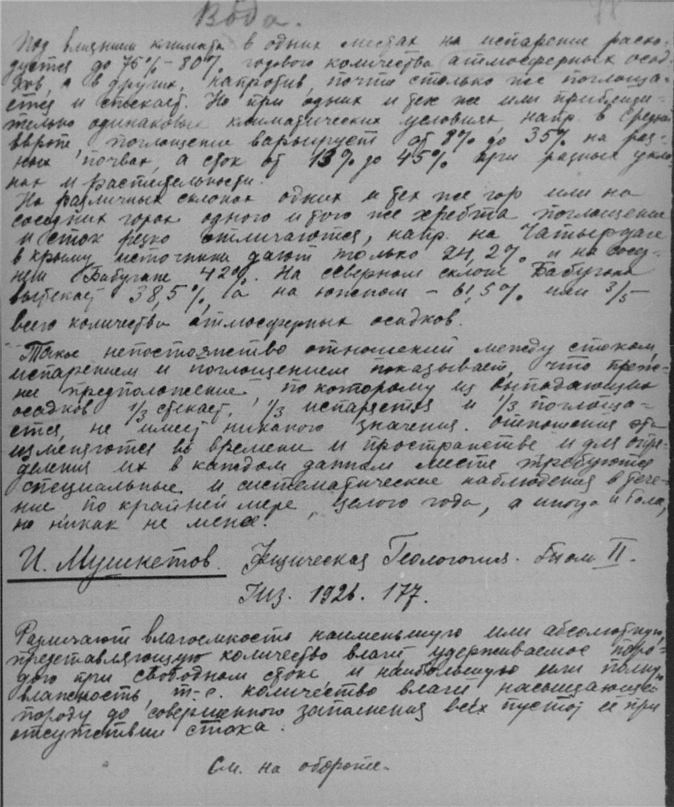 Вода.
Под влиянием климата в одних местах на испарение расхо-
дуется до 75%-80% годового количества атмосферных осад-
ков, а в других, напротив, почти столько же поглоща-
ется и стекает. Но при одних и тех же или приблизи-
тельно одинаковых климатических условиях напр. в средней
Европе, поглощение варьирует от 8% до 35% на раз-
ных почвах, а сток от 13% до 45% при разных укло-
нах и растительности.
На различных склонах одних и тех же гор или на
соседних горах одного и того же хребта поглощение
и сток резко отличаются, напр. на Чатырдаге
в Крыму источники дают только 24,2% и на сосед-
нем Бабугане 42%. На северном склоне Бабугана
вытекает 38,5%, а на южном - 61,5% или 3/5-
всего количества атмосферных осадков.
Такое непостоянство отношений между стоком,
испарением и поглощением показывает, что преж-
нее предположение по которому из выпадающих
осадков 1/3 стекает, 1/3 испаряется и 1/3 поглоща-
ется, не имеет никакого значения. Отношения эти
изменяются во времени и пространстве и для опре-
деления их в каждом данном месте требуются
специальные и систематические наблюдения в тече-
ние по крайней мере, целого года, а иногда и более,
но никак не менее.
И. Мушкетов. Физическая Геология. Том II.
Гиз. 1926. 177.
Различают влагоемкость наименьшую или абсолютную,
представляющую количество влаги удерживаемое поро-
дою при свободном стоке и наибольшую или полную
влажность т-е. количество влаги насыщающее
породу до совершенного заполнения всех пустот ее при
отсутствии стока.
См. на обороте.